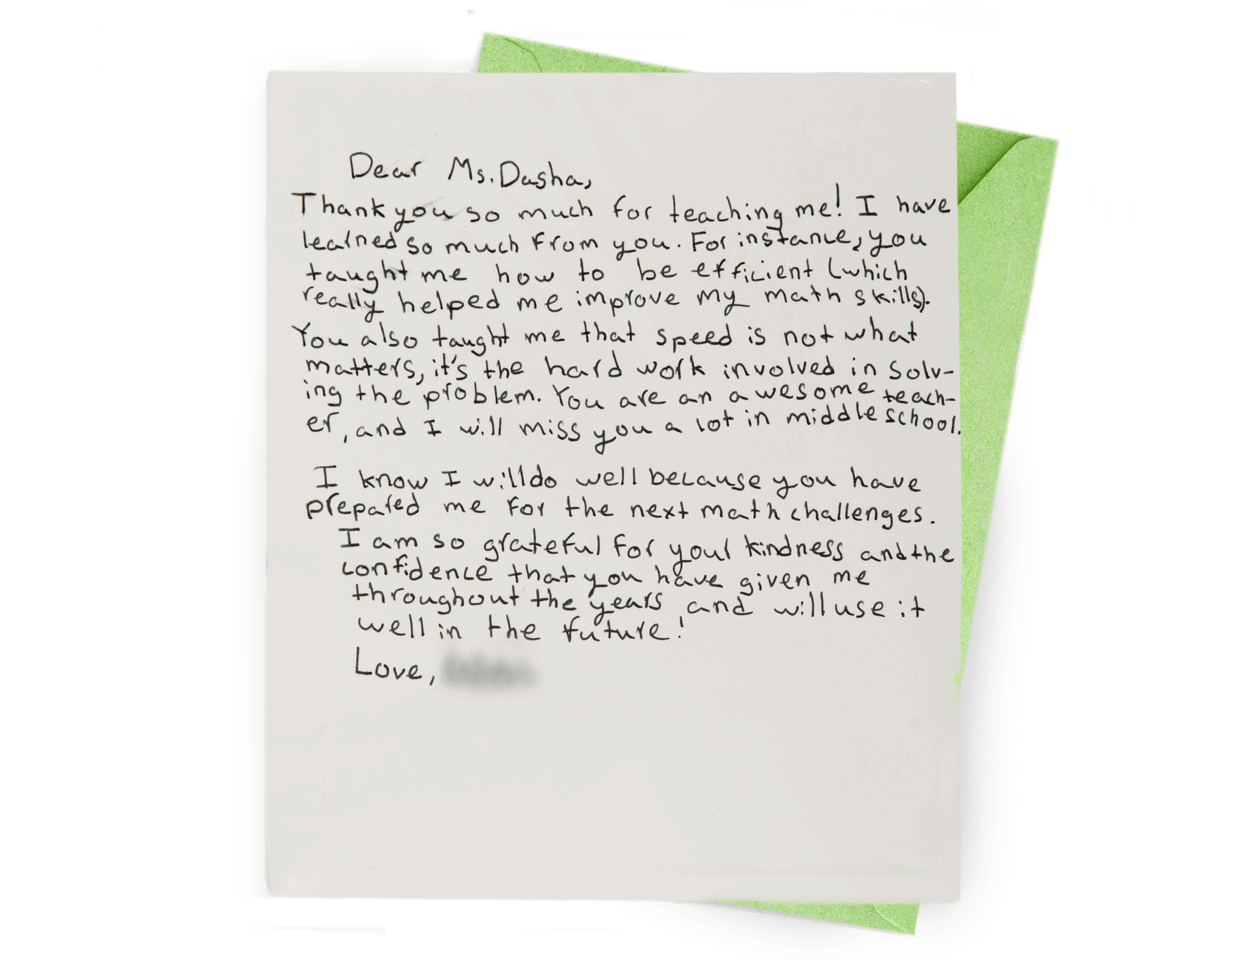 Dear Ms. Dasha,
Thank you so much for teaching me! I have
learned so much from you. For instance, you
taught me how to be efficient (which
really helped me improve my math skills).
You also taught me that speed is not what
matters, it's the hard work involved in solv-
ing the problem. You are an awesome teach-
er, and I will miss you a lot in middle school.
I know I will do well because you have
prepared me for the next math challenges.
I am so grateful for your kindness and the
confidence that you have given me
throughout the years and will use it
well in the future!
Love,